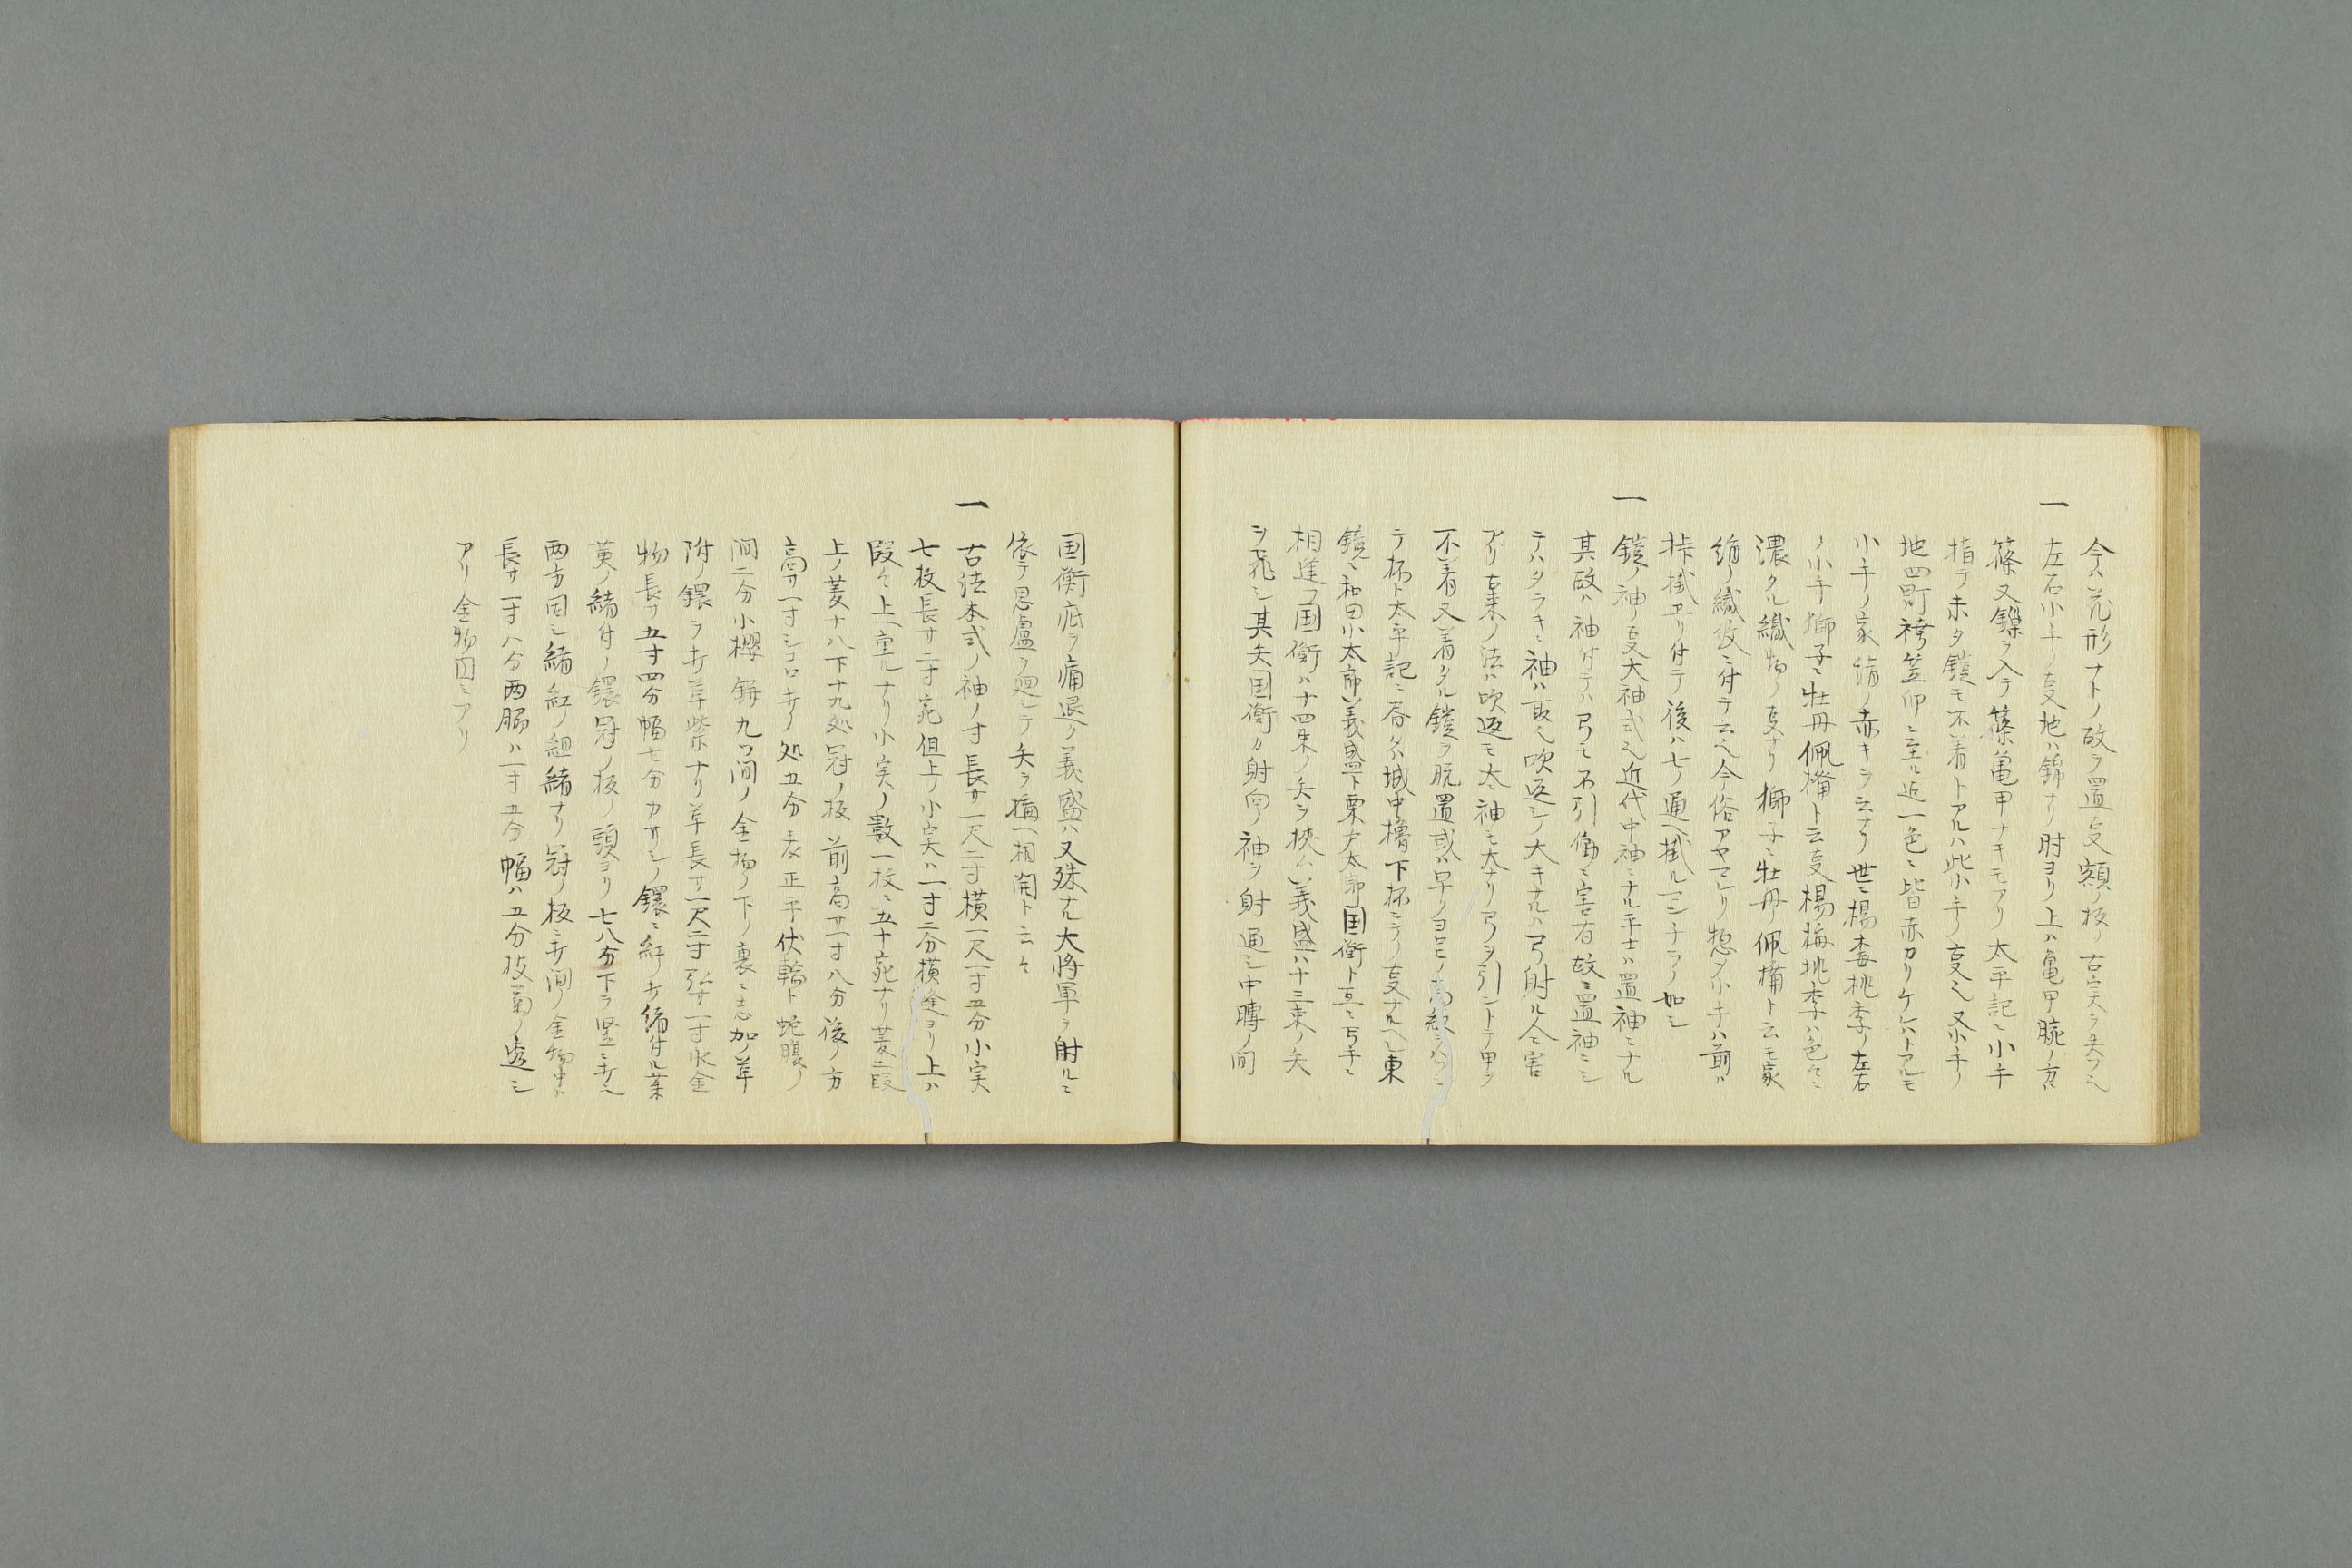 今ハ荒形ナトノ故ヲ置夏額ノ板ノ古実ヲ失フヘ
一 左右小手ノ夏地ハ錦ナリ肘ヨリ上ハ亀甲腕ノ方ハ
篠又鏁ヲ入テ篠亀甲ナキモアリ太平記ニ小手
指テ未タ鎧モ不着トアルハ此小手ノ夏也又小手ノ
地四町袴笠印ニ至ル近一色ニ皆赤カリケルハトアルモ
小手ノ家絹ノ赤キヲ云ナリ世ニ楊梅桃李ノ左右
ノ小手獅子ニ牡丹佩楯ト云夏楊梅桃李ハ色々ニ
濃タル織物ノ夏ナリ獅子ニ牡丹ノ佩楯ト云モ家
絹ノ織紋ニ付テ云也今俗アヤマレリ惣〆小手ハ前ハ
挊掛ヨリ付テ後ハ七ノ通ヘ掛ル一シナラノ如シ
一 鎧ノ袖ノ夏大袖式也近代中袖ニナル平士ハ置袖ニナル
其故ハ袖付テハ弓モ不引働ニ害有故ニ置袖ニシ
テハタラキニ袖ハ取也吹返シノ大キナルハ弓射ル人ニ害
アリ古来ノ法ハ吹返モ大袖モ大ナリ弓ヲ引ントテ甲ヲ
不着又着タル鎧ヲ脱置或ハ早リヨヒノ高紐ヲハツシ
テ抔ト太平記ニ呑タハ城中櫓下抔ニテノ夏ナルヘシ東
鏡ニ和田小太郎義盛ト栗戸太郎国衡ト互ニ弓手ニ
相逢フ国衡ハ十四束ノ矢ヲ挾ム義盛ハ十三束ノ矢
ヲ飛シ其矢国衡カ射向ノ袖ヲ射通シ中膊ノ間
国衡疵ヲ痛退ノ義盛ハ又殊ナル大将軍ヲ射ルニ
依テ思慮ヲ廻シテ矢ヲ構ヘ相開ト云々
一 古法本式ノ袖ノ寸長サ一尺二寸横一尺一寸五分小実
七枚長サ二寸宛但上ノ小実ハ一寸二分横縫ヨリ上ハ
段々上重ルナリ小実ノ數一枚ニ五十宛ナリ菱二段
上ノ菱十八下十九処冠ノ板前高サ一寸八分後ノ方
高サ一寸シコロ打ノ処五分表正平伏輪ト蛇腹ノ
間二分小櫻鋲九ツ間ノ金物ノ下ノ裏ニ志加ノ革
附ノ鐶ヲ打革紫ナリ革長サ一尺二寸弘サ一寸水金
物長サ五寸四分幅七分カサシノ鐶ニ紅ノ打絹付ル葉
菱ノ緒付ノ鐶冠ノ板ノ頭ヨリ七八分下ヲ竪ニ打也
両方同シ緒紅ノ組緒ナリ冠ノ板ニ打間ノ金物中ハ
長サ一寸八分両脇ハ一寸五分幅ハ五分枝菊ノ透シ
アリ金物図ニアリ